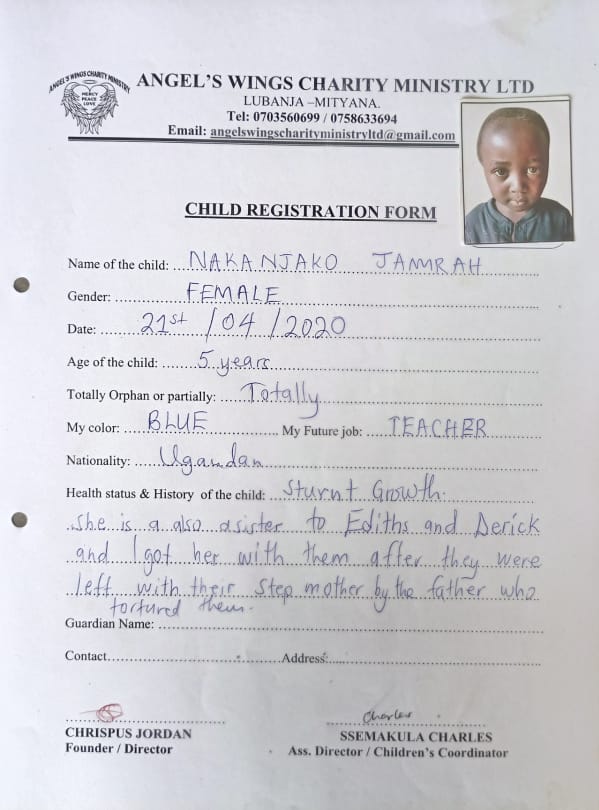 ANGEL'S WINGS CHARITY MINISTRY
MERCY
PEACE
LOVE
ANGEL'S WINGS CHARITY MINISTRY LTD
LUBANJA –MITYANA.
Tel: 0703560699 / 0758633694
Email: angelswingscharityministryltd@gmail.com
CHILD REGISTRATION FORM
Name of the child: NAKANJAKO JAMRAH
Gender: FEMALE
Date: 21st /04 /2020
Age of the child: 5 years
Totally Orphan or partially: Totally
My color: BLUE My Future job: TEACHER
Nationality: Ugandan
Health status & History of the child: Sturnt Growth.
she is a also asister to Ediths and Derick
and I got her with them after they were
left with their step mother by the father who
tortured them.
Guardian Name:
Contact Address:
Charles
CHRISPUS JORDAN SSEMAKULA CHARLES
Founder / Director Ass. Director / Children's Coordinator